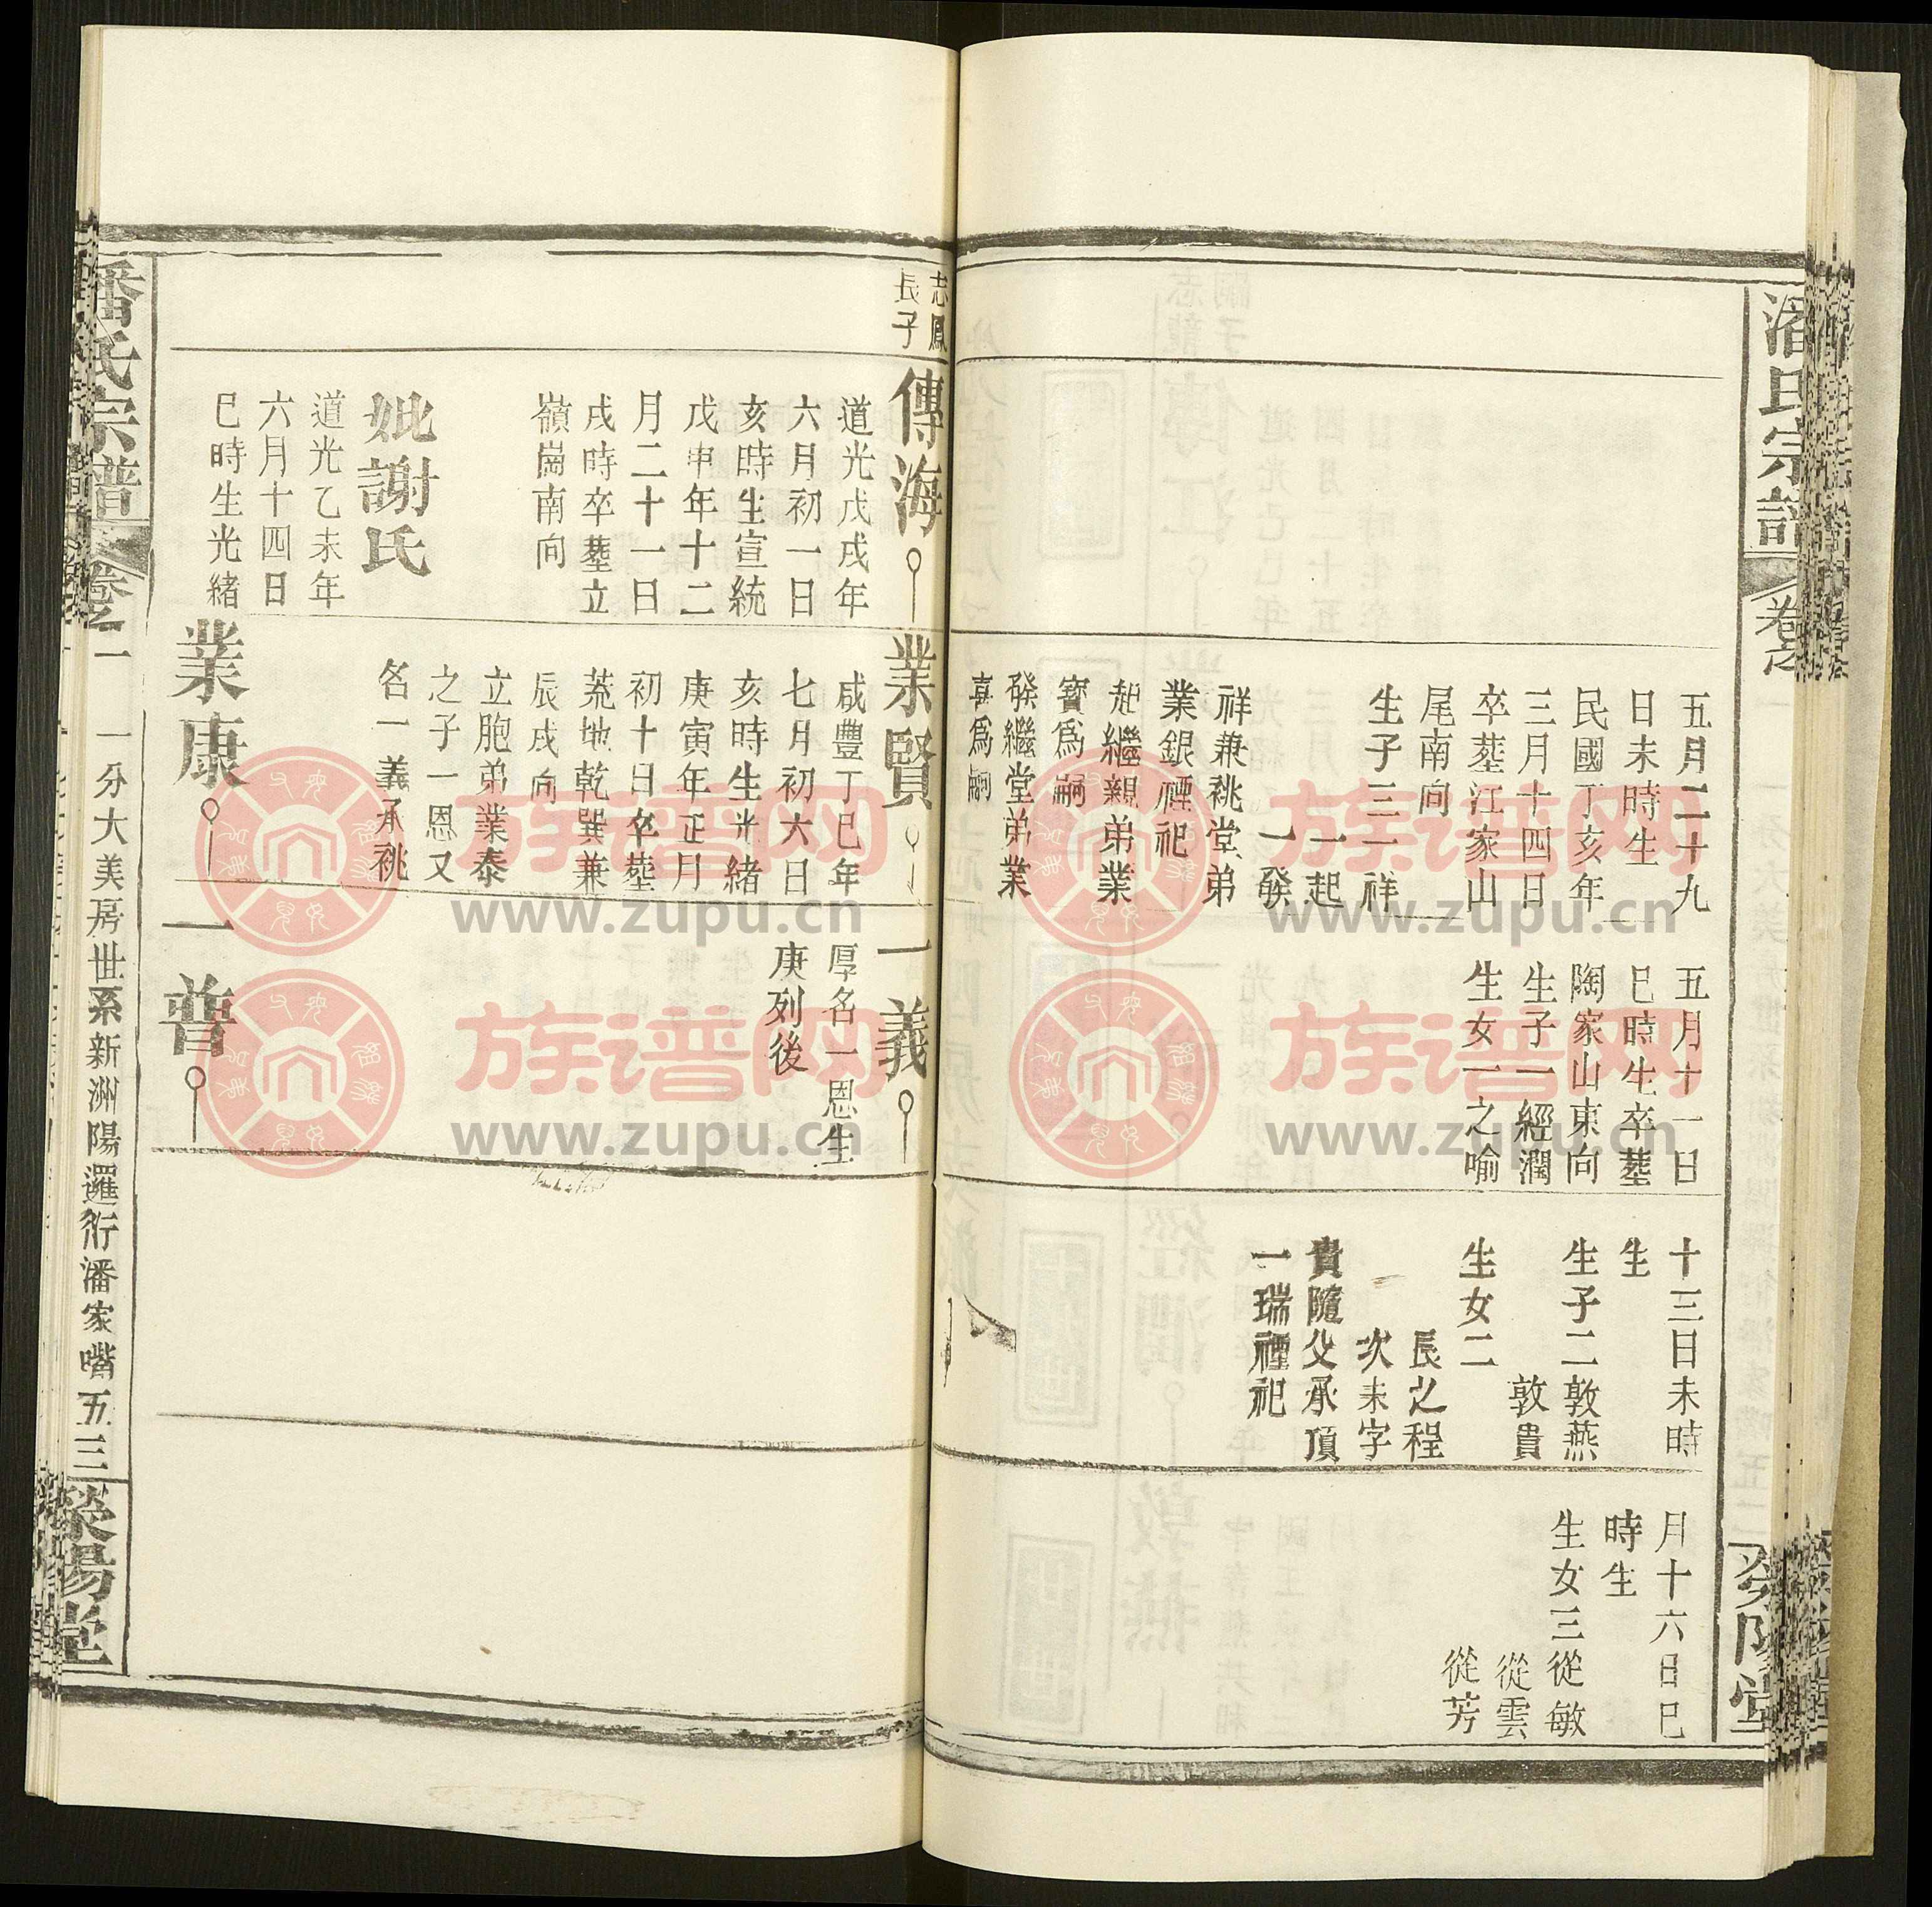 潘氏宗譜
卷之
滎陽堂
五月二十九
日未時生
民國丁亥年
三月十四日
卒塟江家山
尾南向
生子三一祥
一起
一發
祥兼祧堂弟
業銀禋祀
起繼親弟業
寶為嗣
發繼堂弟業
喜為嗣
五月十一日
巳時生卒塟
陶家山東向
生子一經潤
生女一之喻
十三日未時
生
生子二敦燕
敦貴
生女二
長之程
次未字
貴隨父承頂
一瑞禋祀
月十六日巳
時生
生女三從敏
從雲
從芳
志鳳
長子
傳海
道光戊戌年
六月初一日
亥時生宣統
戊申年十二
月二十一日
戌時卒塟立
嶺崗南向
妣謝氏
道光乙未年
六月十四日
巳時生光緒
業賢
咸豐丁巳年
七月初六日
亥時生光緒
庚寅年正月
初十日卒塟
菀地乾巽兼
辰戌向
立胞弟業泰
之子一恩又
名一義承祧
業康
一義
厚名一恩生
庚列後
一普
潘氏宗譜
卷之一
一分大美房世系新洲陽邏行潘家嘴
五三
滎陽堂
族谱网
www.zupu.cn
族谱网
www.zupu.cn
族谱网
www.zupu.cn
族谱网
www.zupu.cn